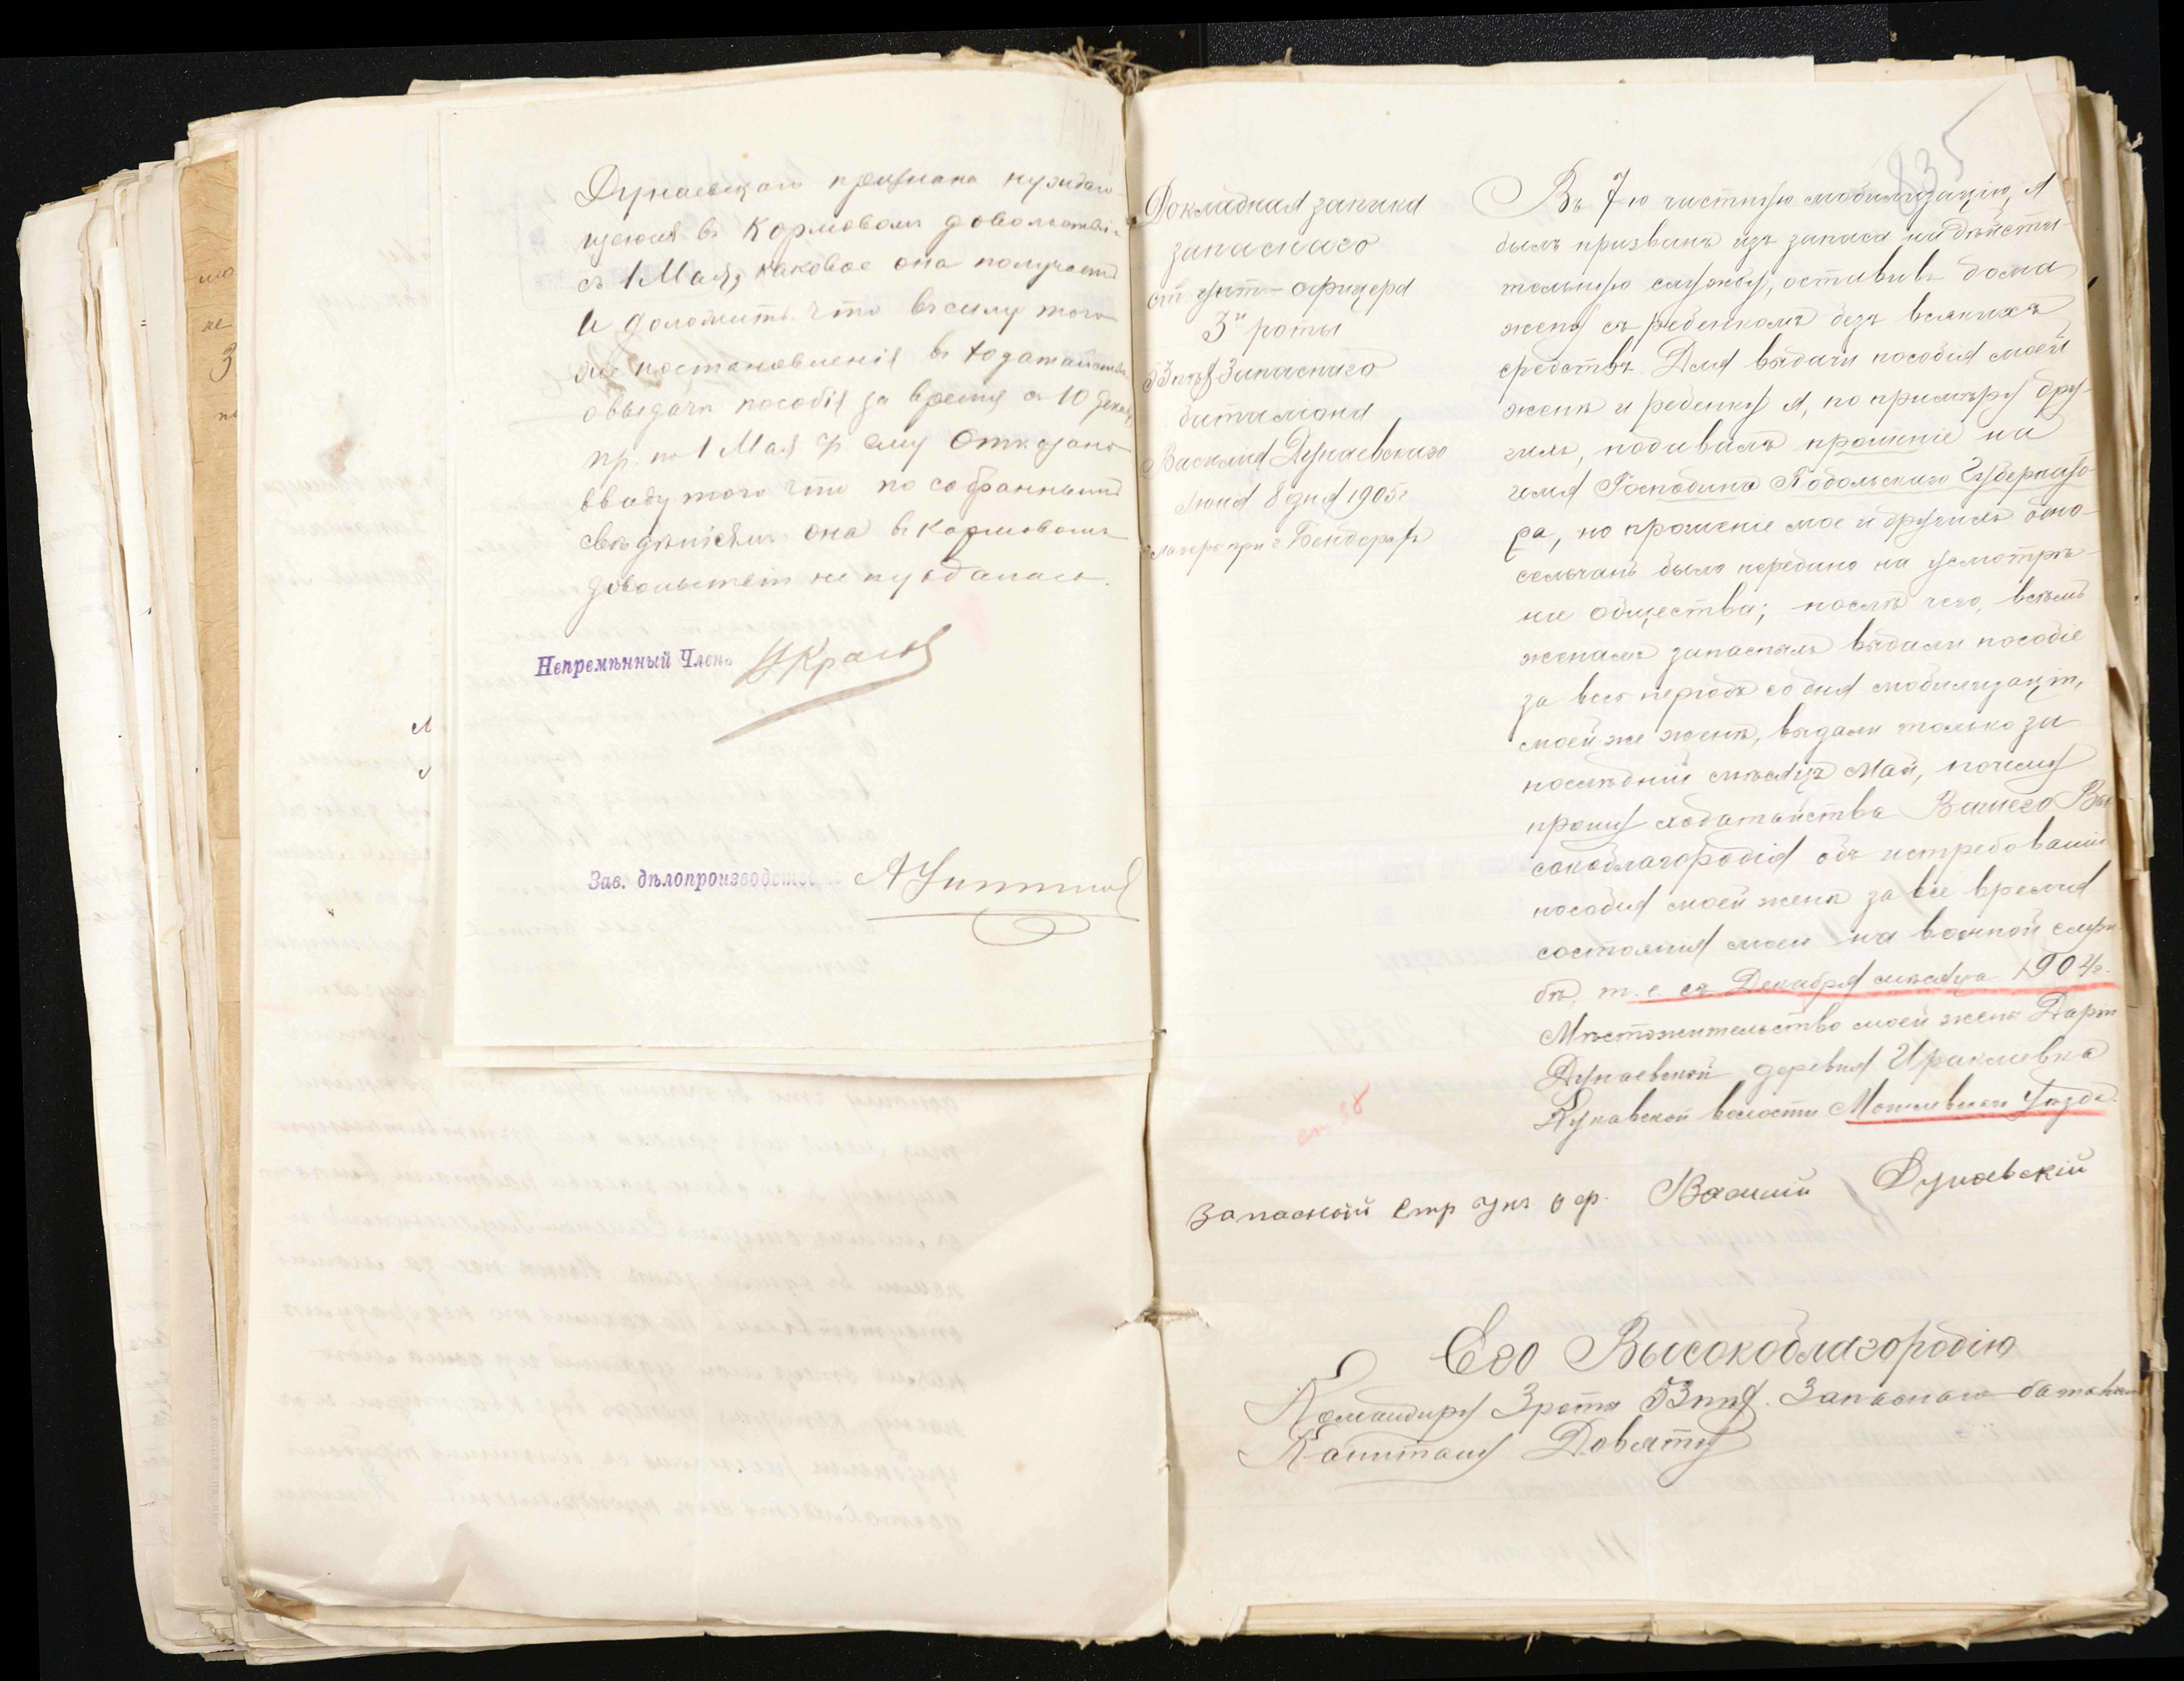 Дунаевскаго признана нуждаю-
щеюся въ Кормовомъ довольствіи
съ 1 Мая, каковое она получаетъ
и доложить что въ силу того
же постановленія въ ходатайствѣ
о выдачѣ пособія за время съ 10 Декаб,
пр. по 1 Мая ему Отказано
въ виду того что по собраннымъ
свѣдѣніямъ она въ Кормовомъ
довольствіи не нуждалась.
Непремѣнный Членъ
Зав. дѣлопроизводств
835
Докладная записка
запаснаго
ст. унт-офицера
3й роты
53 пѣх. Запаснаго
баталіона
Василія Дунаевскаго
Іюня 8 дня 1905 г.
лагерь при г. Бендерахъ
Въ 7-ю частную мобилизацію, я
былъ призванъ изъ запаса на дѣйстви-
тельную службу, оставивъ дома
жену съ ребенкомъ безъ всякихъ
средствъ. Для выдачи пособія моей
женѣ и ребенку я, по примѣру дру-
гихъ, подавалъ прошеніе на
имя Господина Подольскаго Губернато-
ра, но прошеніе мое и другихъ одно-
сельчанъ было передано на усмотрѣ-
ніе общества; послѣ чего, всѣмъ
женамъ запасныхъ выдали пособіе
за весь періодъ со дня мобилизаціи,
моей-же женѣ, выдали только за
послѣдній мѣсяцъ Май, почему
прошу ходатайства Вашего Вы
сокоблагородія объ истребованіи
пособія моей женѣ за все время
состоянія моего на военной служ
бѣ, т.е. съ Декабря мѣсяца 1904 г.
Мѣстожительство моей жены Дарьи
Дунаевской деревня Ираклиевка
Лукавской волости Могилевскаго Уѣзда.
запасный Стр унт оф. Василій Дунаевскій
Его Высокоблагородію
Командиру 3 роты 53 пѣх. Запаснаго баталіона
Капитану Довяту